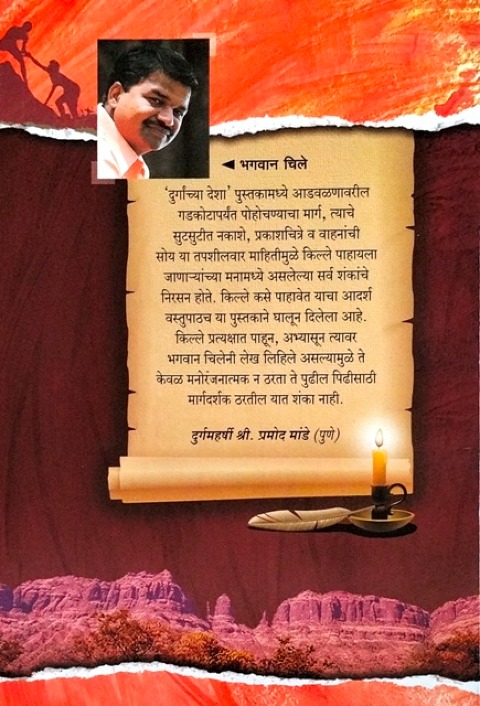 ◄ भगवान चिले
'दुर्गांच्या देशा' पुस्तकामध्ये आडवळणावरील
गडकोटापर्यंत पोहोचण्याचा मार्ग, त्याचे
सुटसुटीत नकाशे, प्रकाशचित्रे व वाहनांची
सोय या तपशीलवार माहितीमुळे किल्ले पाहायला
जाणाऱ्यांच्या मनामध्ये असलेल्या सर्व शंकांचे
निरसन होते. किल्ले कसे पाहावेत याचा आदर्श
वस्तुपाठच या पुस्तकाने घालून दिलेला आहे.
किल्ले प्रत्यक्षात पाहून, अभ्यासून त्यावर
भगवान चिलेनी लेख लिहिले असल्यामुळे ते
केवळ मनोरंजनात्मक न ठरता ते पुढील पिढीसाठी
मार्गदर्शक ठरतील यात शंका नाही.
दुर्गमहर्षी श्री. प्रमोद मांडे (पुणे)